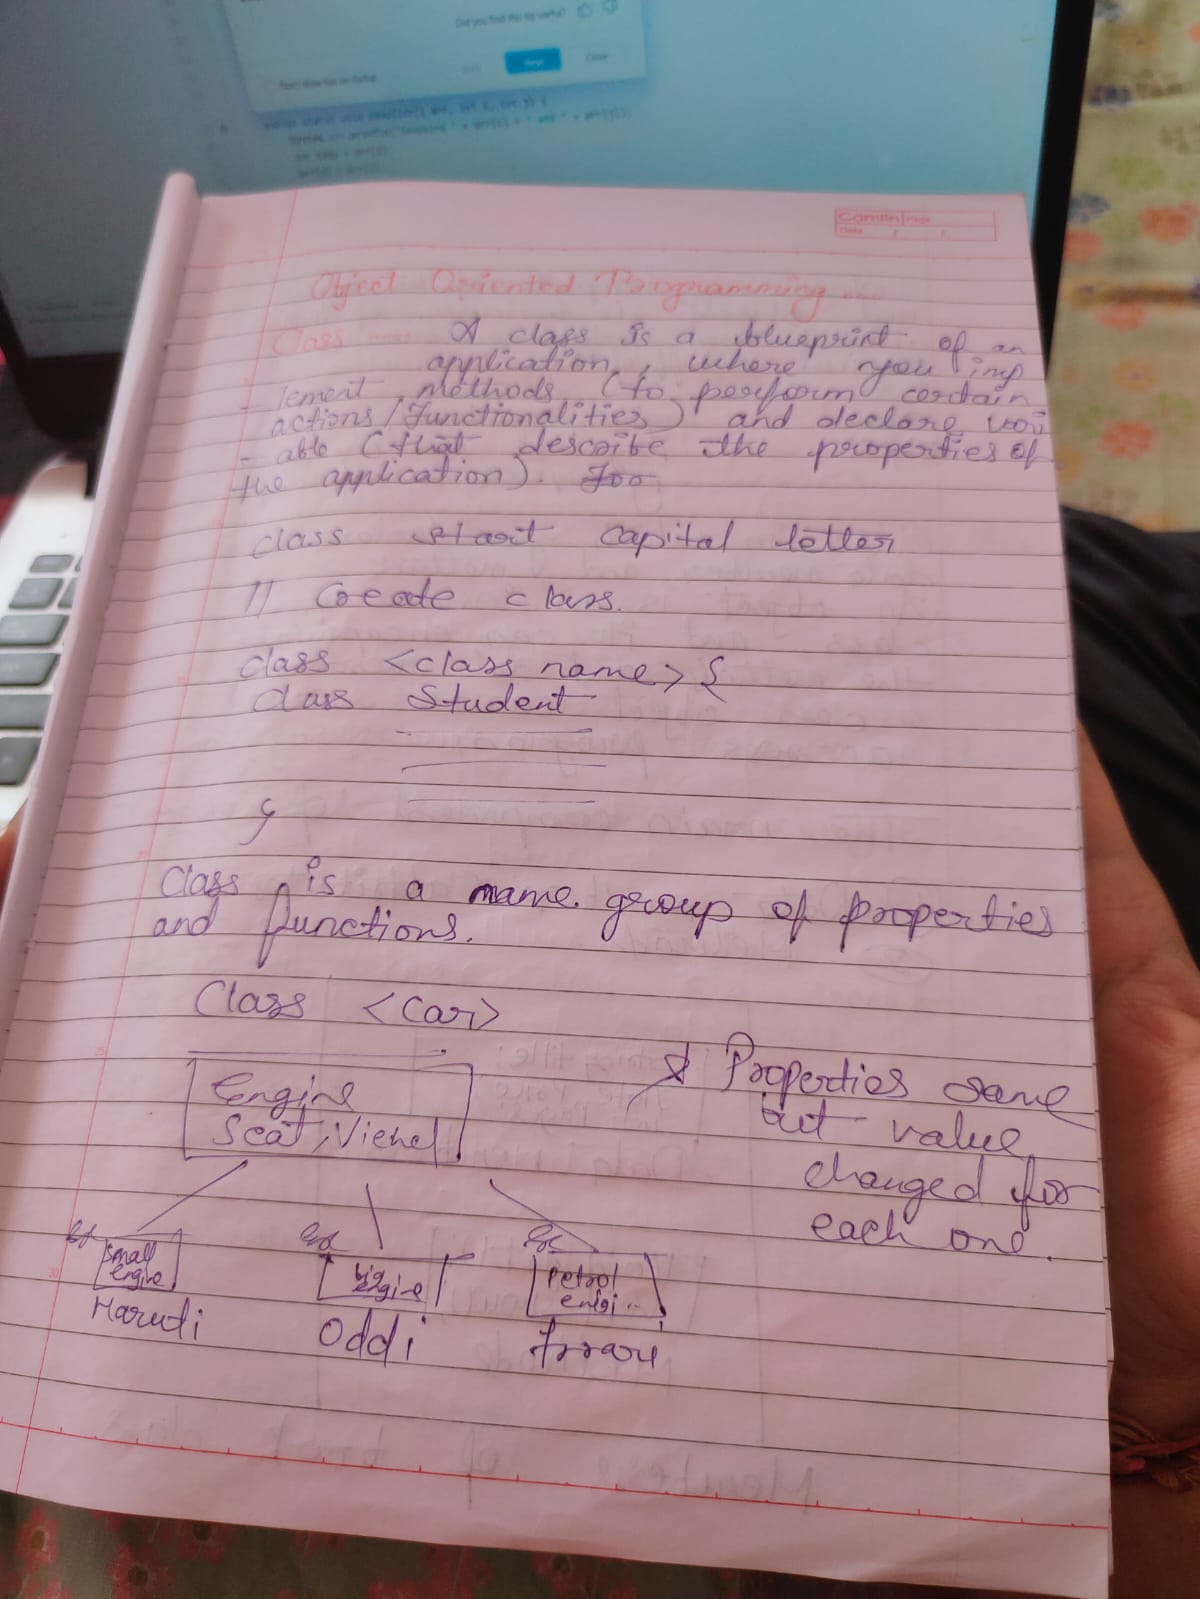 Did you find this tip useful?
Close
Camlin Page
Date / /
Object Oriented Programming
Class A class is a blueprint of an
application, where you imp
- lement methods (to perform certain
actions/functionalities) and declare vari
- able (that describe the properties of
the application). For
class start capital letter
// Create class.
class <class name> {
class Student
}
Class is a name group of properties
and functions.
Class <Car>
Engine
Seat, Viehel
* Properties same
but value
changed for
each one.
Small
engine
Maruti
big
engine
Oddi
Petrol
engi..
Frrari